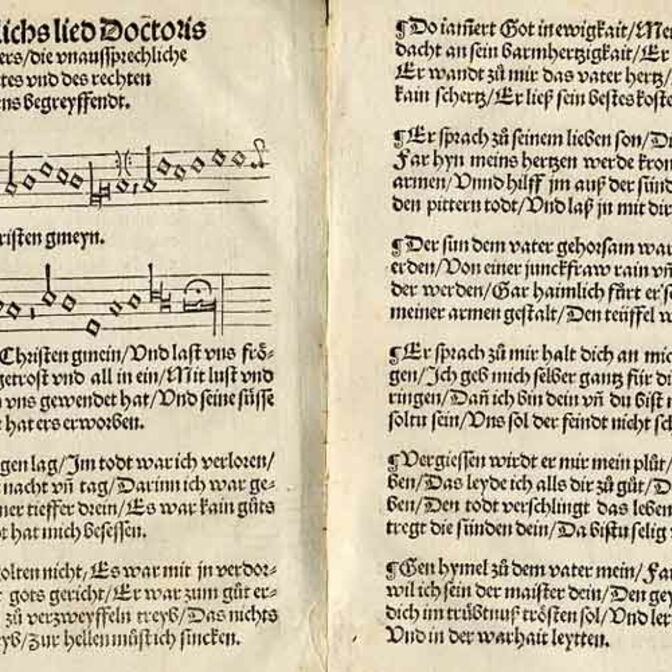 ichs lied Doctoris
ers/die vnaussprechliche
tes vnd des rechten
ens begreyffendt.
risten gmeyn.
Christen gmein/Vnd last vns frö⸗
getrost vnd all in ein/Mit lust vnd
vns gewendet hat/Vnd seine süsse
hat ers erworben.
gen lag/Im todt war ich verloren/
nacht vñ tag/Darinn ich war ge⸗
ner tieffer drein/Es war kain güts
ot hat mich besessen.
olten nicht/Es war mit jn verdor⸗
gots gericht/Er war zum güt er⸗
zů verzweyffeln treyb/Das nichts
eyb/Zur hellen můst ich sincken.
¶Do iamert Got in ewigkait/Me
dacht an sein barmhertzigkait/Er
Er wandt zů mir das vater hertz/
kain schertz/Er ließ sein bestes koste
¶Er sprach zů seinem lieben son/D
Far hyn meins hertzen werde kron
armen/Vnnd hilff jm auß der sünd
den pittern todt/Vnd laß jn mit dir
¶Der sun dem vater gehorsam war
erden/Von einer junckfraw rain vñ
der werden/Gar haimlich fürt er s
meiner armen gestalt/Den teüffel w
¶Er sprach zů mir halt dich an mic
gen/Ich geb mich selber gantz für di
ringen/Dañ ich bin dein vñ du bist
soltu sein/Vns sol der feindt nicht sch
¶Vergiessen wirdt er mir mein plůt/
ben/Das leyde ich alls dir zů gůt/D
ben/Den todt verschlingt das leben
tregt die sünden dein/Da bistu selig
¶Gen hymel zů dem vater mein/Far
wil ich sein der maister dein/Den gey
dich im trübtnuß trösten sol/Vnd ler
Vnd in der warhait leytten.